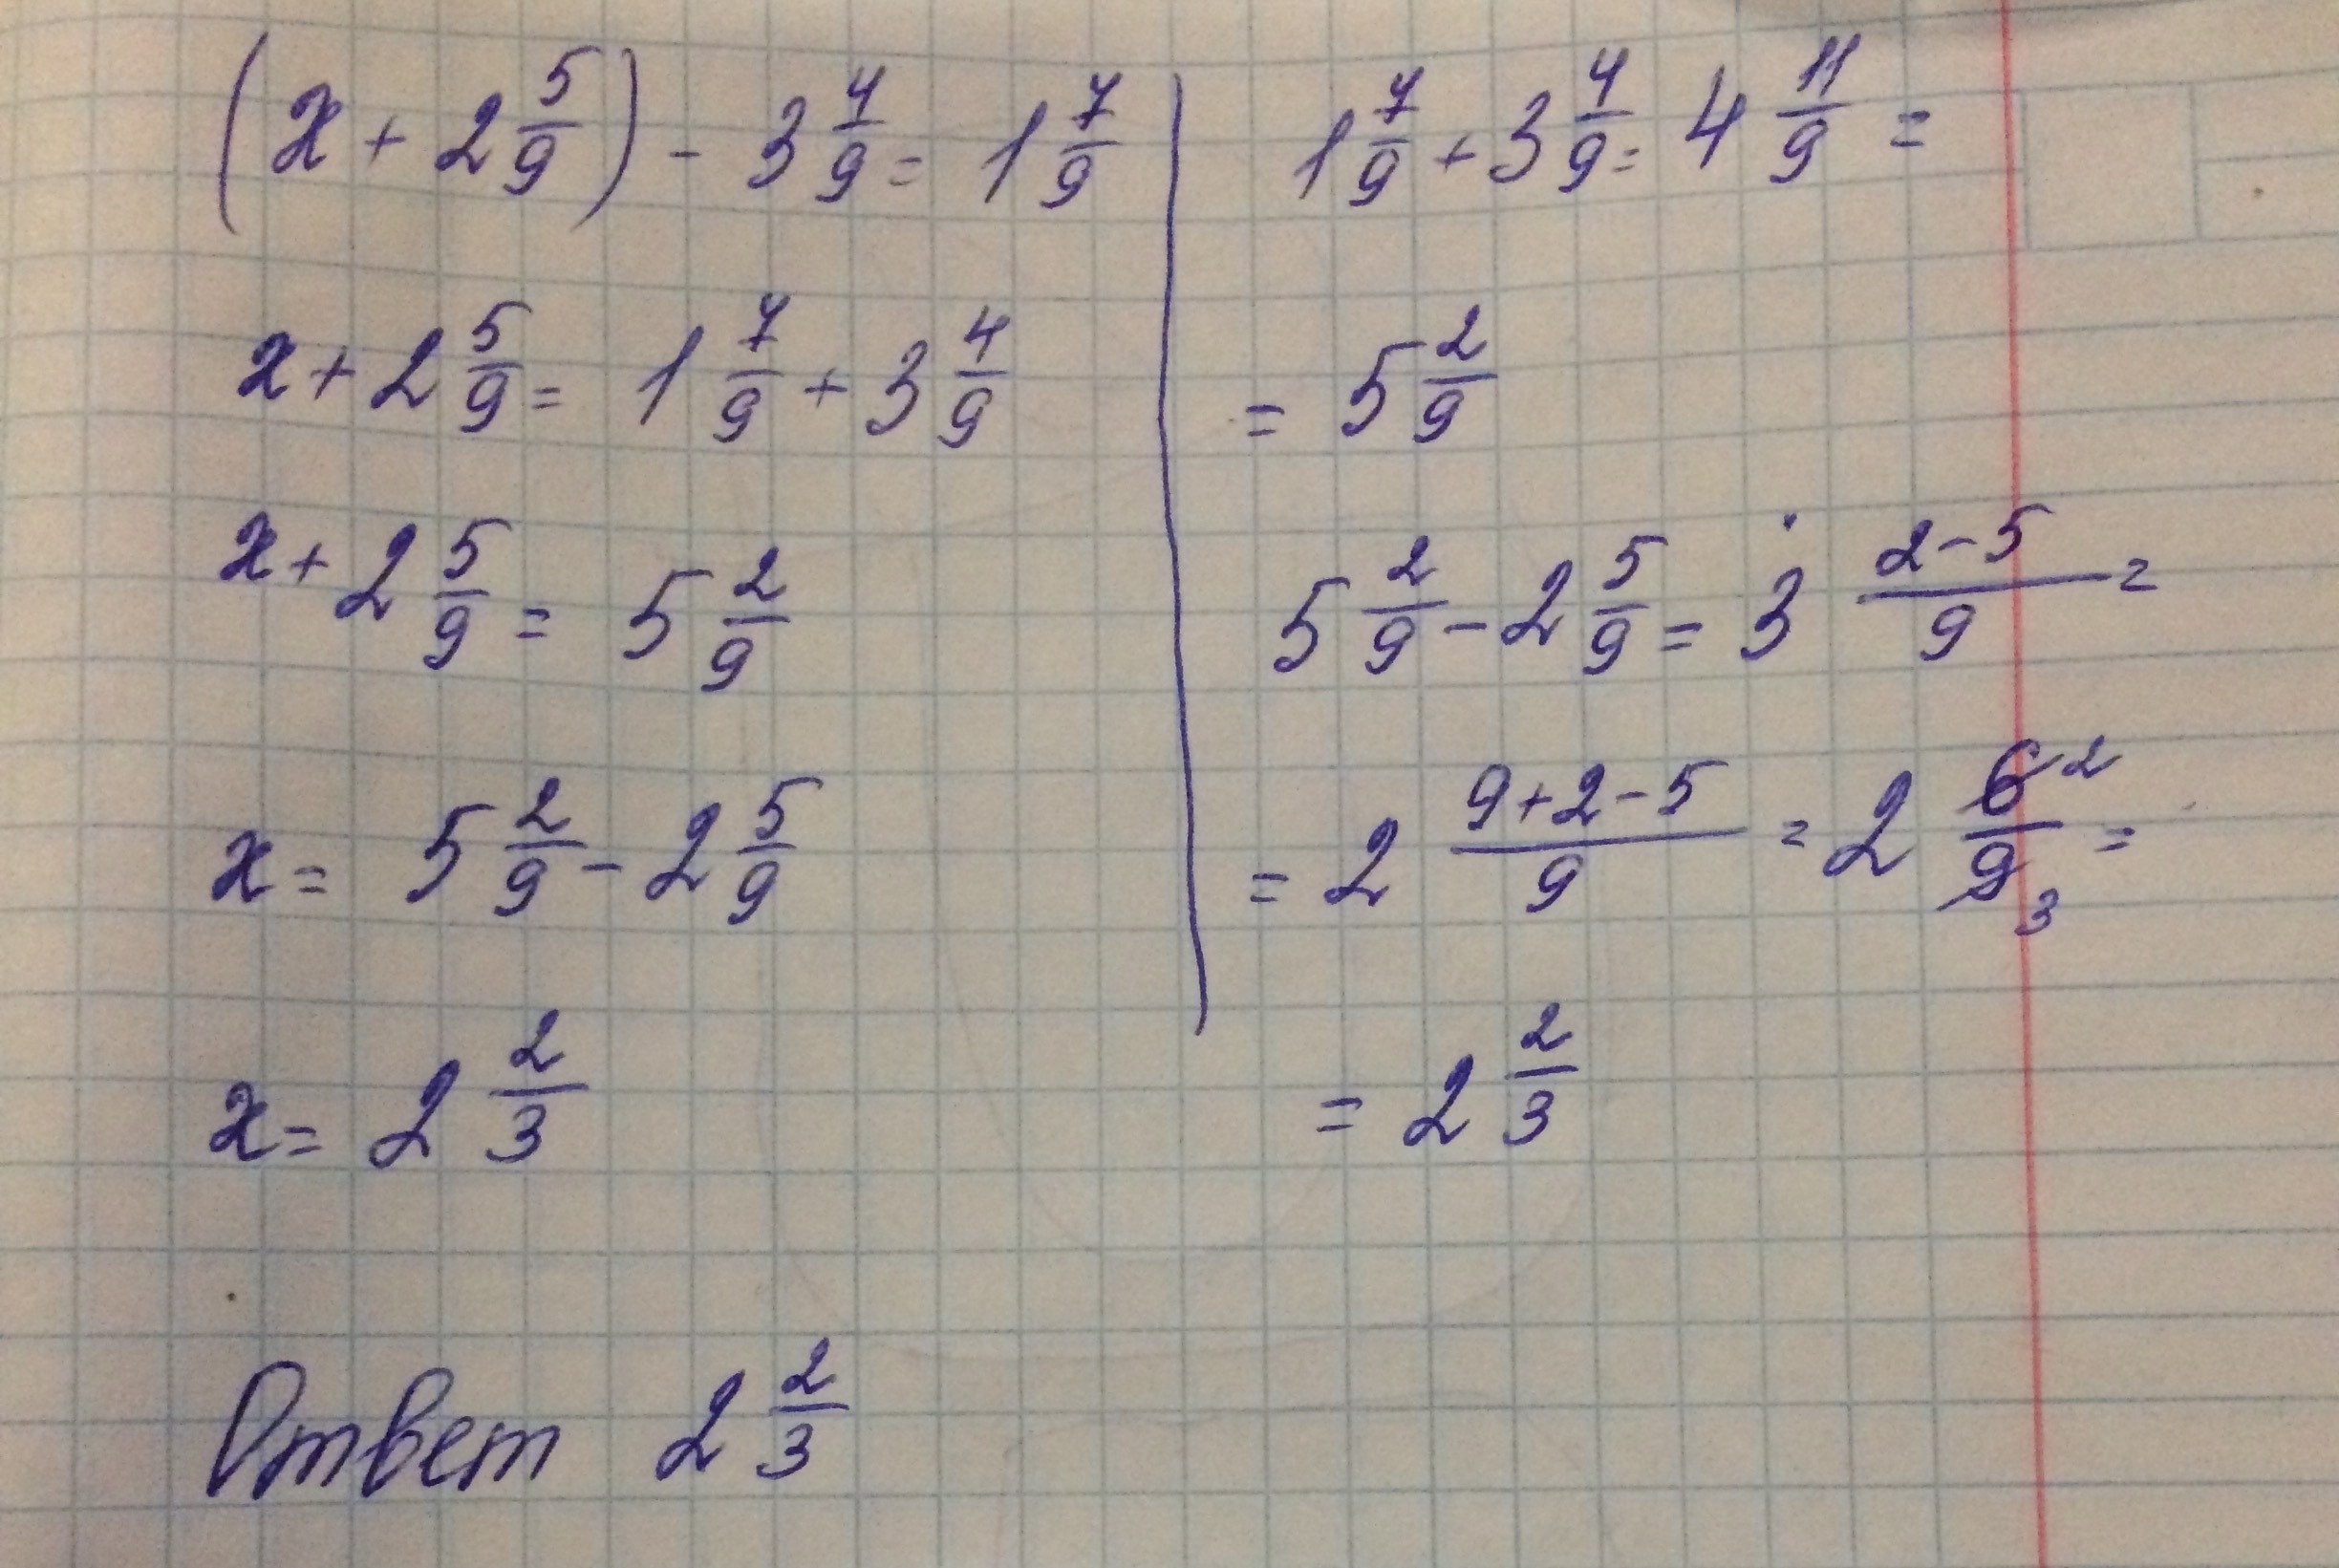 (x + 2 5/9) - 3 4/9 = 1 7/9
x + 2 5/9 = 1 7/9 + 3 4/9
x + 2 5/9 = 5 2/9
x = 5 2/9 - 2 5/9
x = 2 2/3
1 7/9 + 3 4/9 = 4 11/9 =
= 5 2/9
5 2/9 - 2 5/9 = 3 (2-5)/9 =
= 2 (9+2-5)/9 = 2 6²/9₃ =
= 2 2/3
Ответ 2 2/3